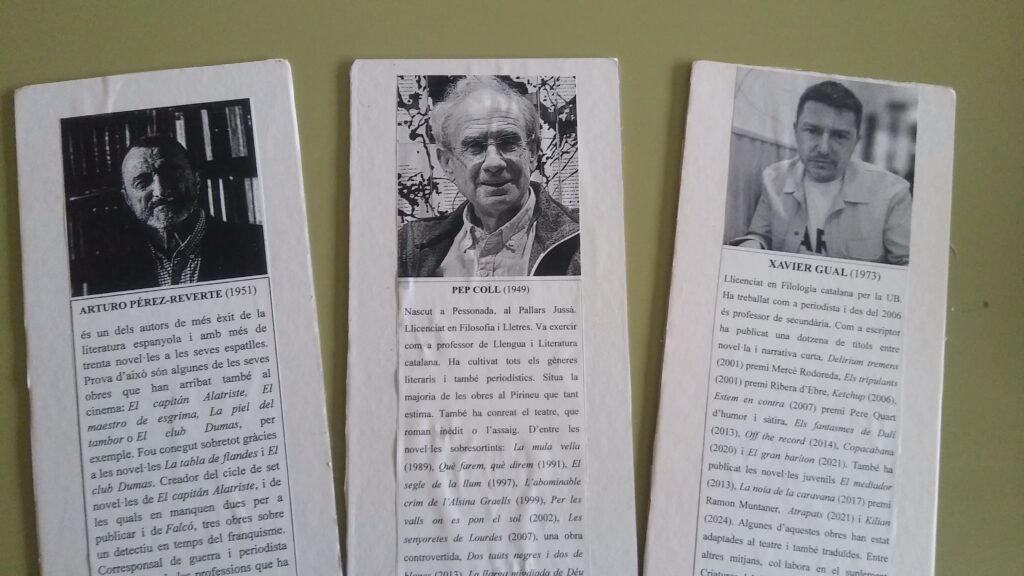 ARTURO PÉREZ-REVERTE (1951)
és un dels autors de més èxit de la
literatura espanyola i amb més de
trenta novel·les a les seves espatlles.
Prova d'això són algunes de les seves
obres que han arribat també al
cinema: El capitán Alatriste, El
maestro de esgrima, La piel del
tambor o El club Dumas, per
exemple. Fou conegut sobretot gràcies
a les novel·les La tabla de flandes i El
club Dumas. Creador del cicle de set
novel·les de El capitán Alatriste, i de
les quals en manquen dues per a
publicar i de Falcó, tres obres sobre
un detectiu en temps del franquisme.
Corresponsal de guerra i periodista
les professions que ha
PEP COLL (1949)
Nascut a Pessonada, al Pallars Jussà.
Llicenciat en Filosofia i Lletres. Va exercir
com a professor de Llengua i Literatura
catalana. Ha cultivat tots els gèneres
literaris i també periodístics. Situa la
majoria de les obres al Pirineu que tant
estima. També ha conreat el teatre, que
roman inèdit o l'assaig. D'entre les
novel·les sobresortints: La mula vella
(1989), Què farem, què direm (1991), El
segle de la llum (1997), L'abominable
crim de l'Alsina Graells (1999), Per les
valls on es pon el sol (2002), Les
senyoretes de Lourdes (2007), una obra
controvertida, Dos taüts negres i dos de
blancs (2013), La llarga migdiada de Déu
AR
XAVIER GUAL (1973)
Llicenciat en Filologia catalana per la UB.
Ha treballat com a periodista i des del 2006
és professor de secundària. Com a escriptor
ha publicat una dotzena de títols entre
novel·la i narrativa curta. Delirium tremens
(2001) premi Mercè Rodoreda, Els tripulants
(2001) premi Ribera d'Ebre, Ketchup (2006),
Estem en contra (2007) premi Pere Quart
d'humor i sàtira, Els fantasmes de Dalí
(2013), Off the record (2014), Copacabana
(2020) i El gran baríton (2021). També ha
publicat les novel·les juvenils El mediador
(2013), La noia de la caravana (2017) premi
Ramon Muntaner, Atrapats (2021) i Kilian
(2024). Algunes d'aquestes obres han estat
adaptades al teatre i també traduïdes. Entre
altres mitjans, col·labora en el suplement
Criatures